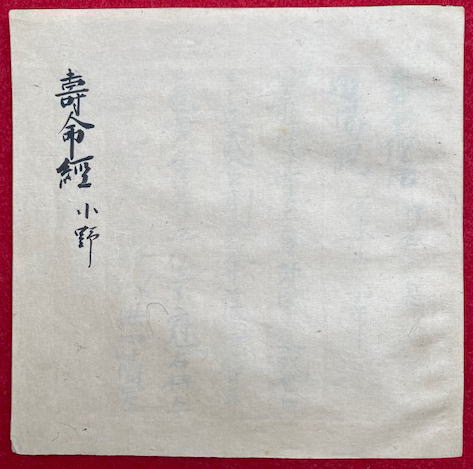 壽命經 小野